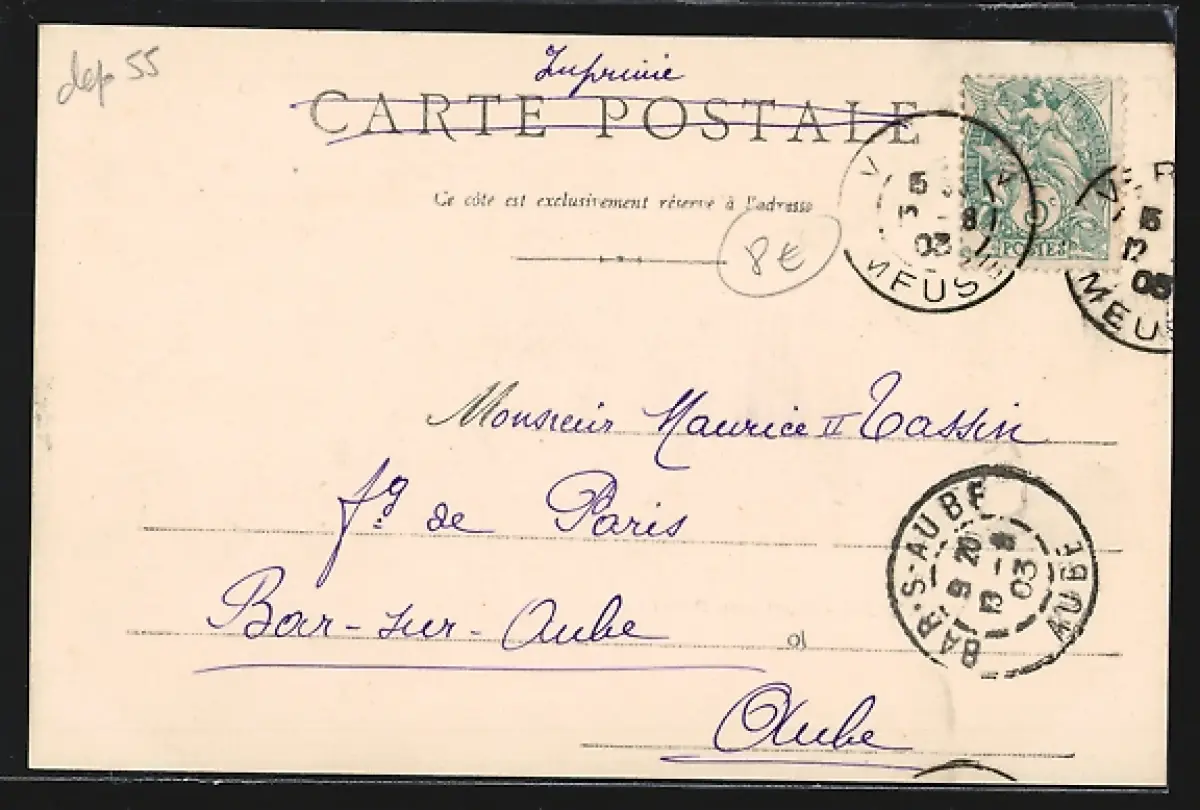 dep 55
Imprimé
CARTE POSTALE
Ce côté est exclusivement réservé à l'adresse
8€
POSTES
MEUSE
03
MEUS
Monsieur Maurice II Tassin
fg de Paris
Bar-sur-Aube
Aube
BAR-S-AUBE
AUBE
9 20
03